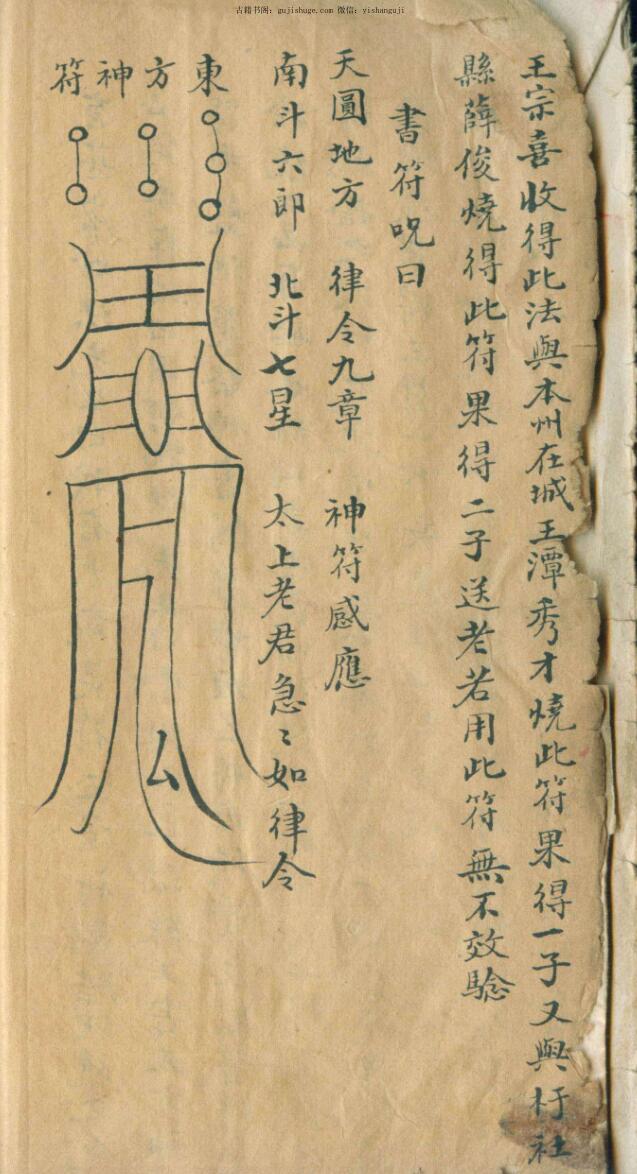 古籍书阁:gujishuge.com 微信:yishanguji
王宗喜收得此法與本州在城王潭秀才燒此符果得一子又與杅社
縣薛俊燒得此符果得二子送老若用此符無不效驗
書符呪曰
天圓地方 律令九章 神符感應
南斗六郎 北斗七星 太上老君急〻如律令
東方神符